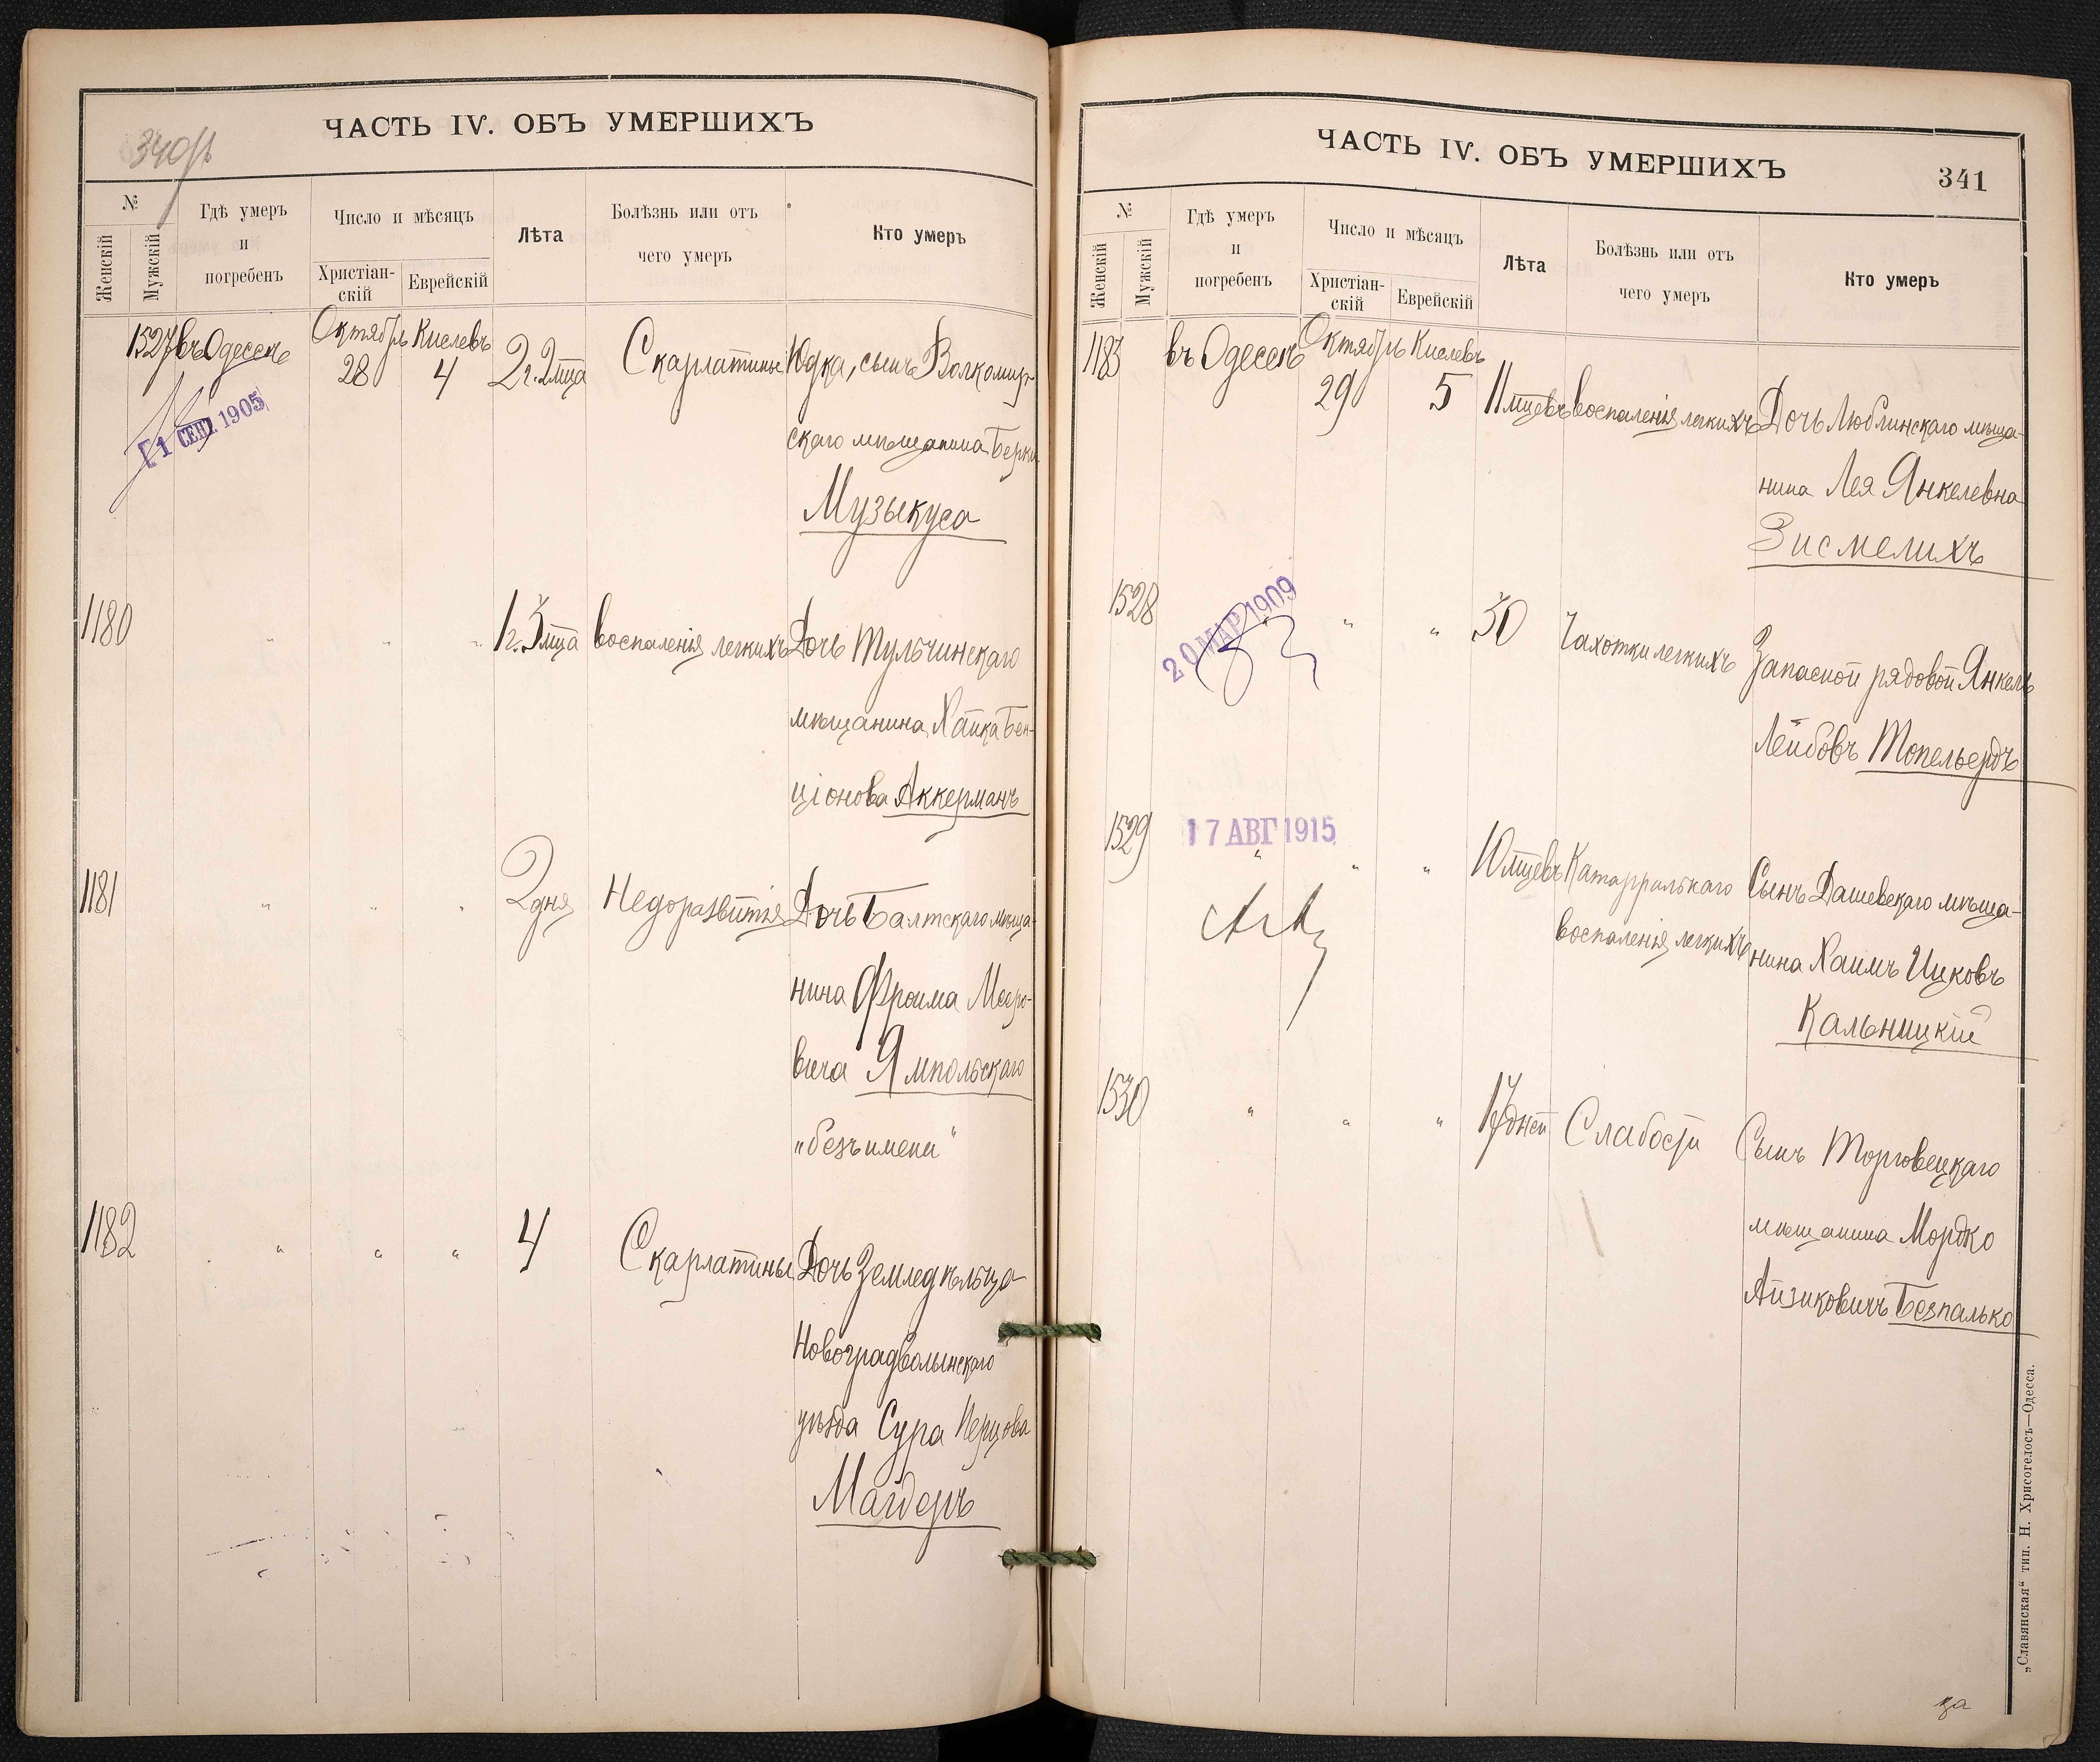 340/б
ЧАСТЬ IV. ОБЪ УМЕРШИХЪ
№
Женскій
Мужскій
Гдѣ умеръ
и
погребенъ
Число и мѣсяцъ
Христіан-
скій
Еврейскій
Лѣта
Болѣзнь или отъ
чего умеръ
Кто умеръ
1527 въ Одессѣ Октября 28 Кислевъ 4 2г. 2 мца Скарлатины Юдка, сынъ Волкомир-
скаго мѣщанина Берки
Музыкуса
[1 СЕН. 1905
1180 " " " 1г. 3 мца воспаленія легкихъ Дочь Тульчинскаго
мѣщанина Хайка Бен-
ціонова Аккерманъ
1181 " " " 2 дня Недоразвитія Дочь Балтскаго мѣща-
нина Фроима Меэро-
вича Ямпольскаго
"безъ имени"
1182 " " " 4 Скарлатины Дочь Земледѣльца
Новоградволынскаго
уѣзда Сура Перцова
Магдеръ
ЧАСТЬ IV. ОБЪ УМЕРШИХЪ
341
№
Женскій
Мужскій
Гдѣ умеръ
и
погребенъ
Число и мѣсяцъ
Христіан-
скій
Еврейскій
Лѣта
Болѣзнь или отъ
чего умеръ
Кто умеръ
1183 въ Одессѣ Октябрь 29 Кислевъ 5 11 мцевъ воспаленія легкихъ Дочь Люблинскаго мѣща-
нина Лея Янкелевна
Зисмелихъ
1528 " " " 30 Чахотки легкихъ Запасной рядовой Янкель
Лейбовъ Топельердъ
20 МАР 1909
1529 " " " 10 мцевъ Катарральнаго Сынъ Дашевскаго мѣща-
воспаленія легкихъ нина Хаимъ Ицковъ
Кальницкій
17 АВГ 1915
1530 " " " 17 дней Слабости Сынъ Торговецкаго
мѣщанина Мордко
Айзиковичъ Безпалько
„Славянская“ тип. Н. Хрисогелосъ—Одесса.